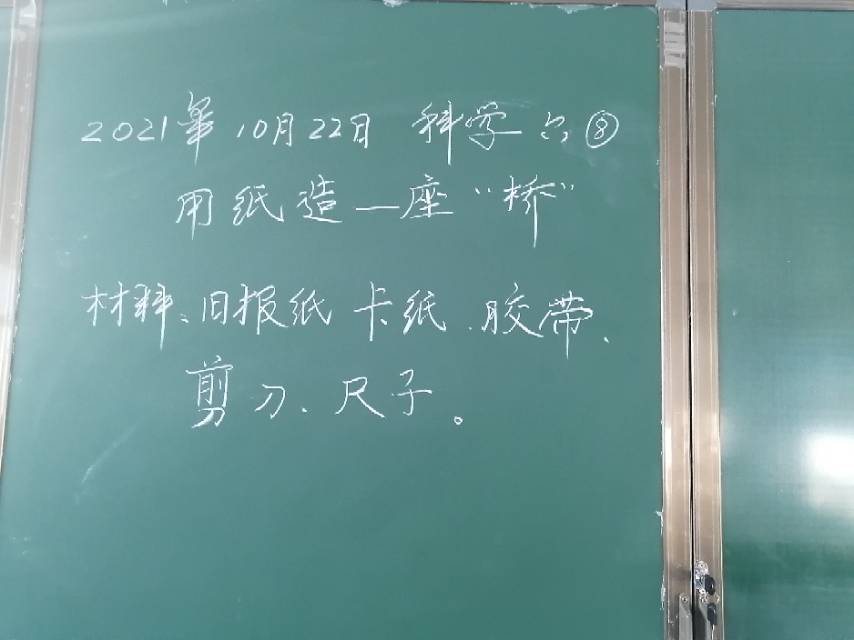 2021年10月22日 科学 六⑧
用纸造一座“桥”
材料:旧报纸 卡纸、胶带、
剪刀、尺子。